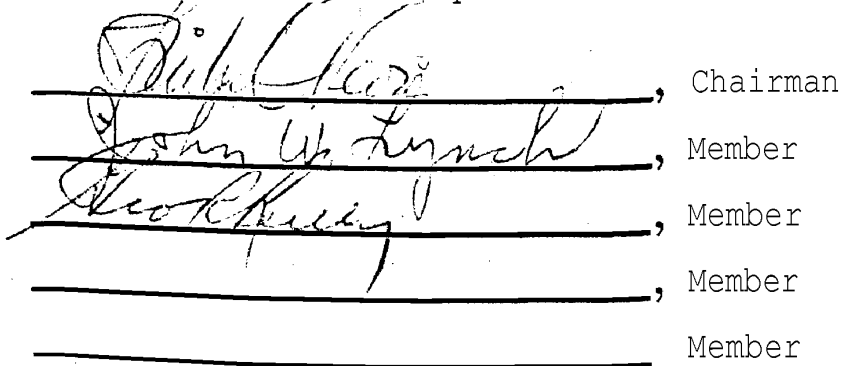 , Chairman
John W. Lynch, Member
, Member
, Member
Member